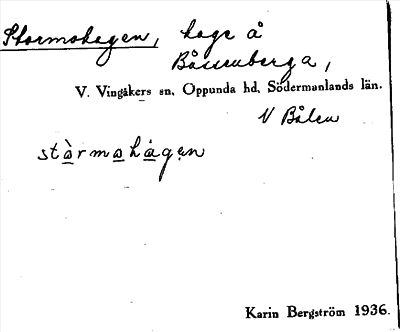 Stormohagen, hage å
Båsenberga,
V. Vingåkers sn, Oppunda hd, Södermanlands län.
V Bålen
stòrmahàgen
Karin Bergström 1936.